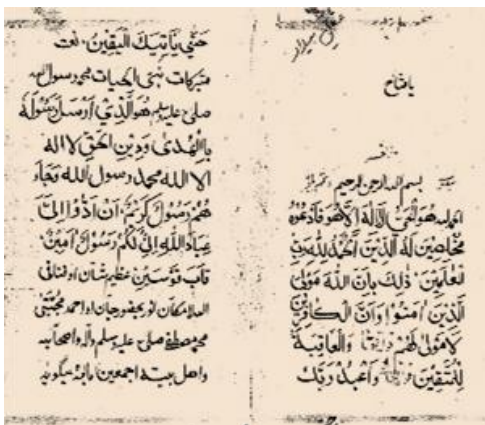 يا فتاح
بسم الله الرحمن الرحيم
الحمد لله هو الحي لا اله الا هو فادعوه
مخلصين له الذين الحمد لله رب
لعلمين ذلك بان الله مولى
الذين امنوا وان الكافرين
لا مولى لهم والعاقبة
للمتقين واعبد ربك
حتى ياتيك اليقين نعت
متبركات نبي الحيات محمد رسول الله
صلى عليه وسلم هو الذي ارسل رسوله
بالهدى ودين الحق لا اله
الا الله محمد رسول الله وجاء
هم رسول كريم ان ادوا الي
عباد الله اني لكم رسول امين
قاب قوسين عظيم شان او فنافى
مكان نور حضور جان او احمد مجتبى
محمد مصطفى صلى عليه وسلم واله واصحابه
واهل بيته اجمعين ميگويد